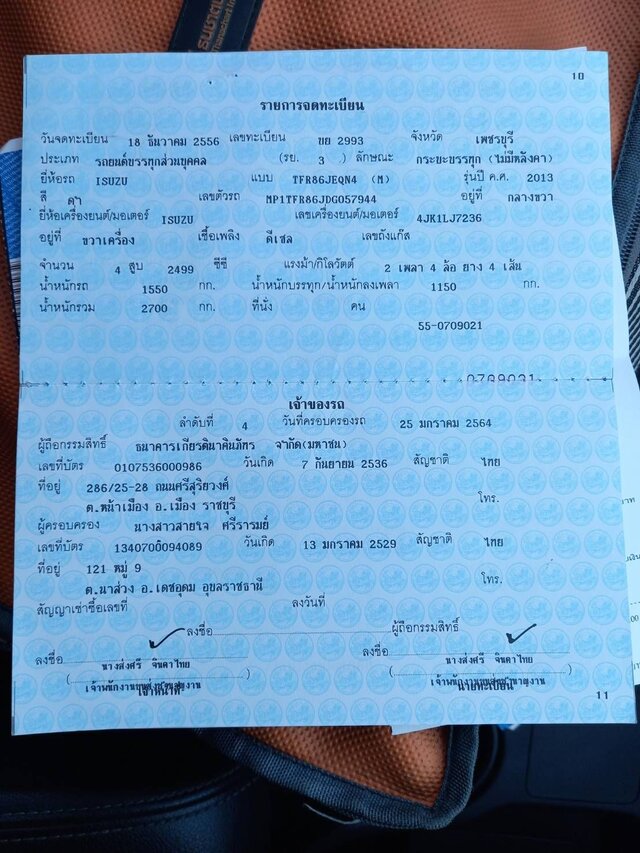 ธนชาต
10
รายการจดทะเบียน
วันจดทะเบียน 18 ธันวาคม 2556 เลขทะเบียน ขย 2993 จังหวัด เพชรบุรี
ประเภท รถยนต์บรรทุกส่วนบุคคล (รย. 3 ) ลักษณะ กระบะบรรทุก (ไม่มีหลังคา)
ยี่ห้อรถ ISUZU แบบ TFR86JEQN4 (M) รุ่นปี ค.ศ. 2013
สี ดำ เลขตัวรถ MP1TFR86JDG057944 อยู่ที่ กลางขวา
ยี่ห้อเครื่องยนต์/มอเตอร์ ISUZU เลขเครื่องยนต์/มอเตอร์ 4JK1LJ7236
อยู่ที่ ขวาเครื่อง เชื้อเพลิง ดีเซล เลขถังแก๊ส
จำนวน 4 สูบ 2499 ซีซี แรงม้า/กิโลวัตต์ 2 เพลา 4 ล้อ ยาง 4 เส้น
น้ำหนักรถ 1550 กก. น้ำหนักบรรทุก/น้ำหนักลงเพลา 1150 กก.
น้ำหนักรวม 2700 กก. ที่นั่ง คน
55-0709021
0709021
เจ้าของรถ
ลำดับที่ 4 วันที่ครอบครองรถ 25 มกราคม 2564
ผู้ถือกรรมสิทธิ์ ธนาคารเกียรตินาคินภัทร จำกัด(มหาชน)
เลขที่บัตร 0107536000986 วันเกิด 7 กันยายน 2536 สัญชาติ ไทย
ที่อยู่ 286/25-28 ถนนศรีสุริยวงค์
ต.หน้าเมือง อ.เมือง ราชบุรี โทร.
ผู้ครอบครอง นางสาวสายใจ ศรีรารมย์
เลขที่บัตร 1340700094089 วันเกิด 13 มกราคม 2529 สัญชาติ ไทย
ที่อยู่ 121 หมู่ 9
ต.นาส่วง อ.เดชอุดม อุบลราชธานี โทร.
สัญญาเช่าซื้อเลขที่ ลงวันที่
ลงชื่อ ผู้ถือกรรมสิทธิ์
ลงชื่อ
นางส่งศรี จินดาไทย นางส่งศรี จินดาไทย
เจ้าพนักงานขนส่งชำนาญงาน เจ้าพนักงานขนส่งชำนาญงาน
เจ้าหน้าที่ นายทะเบียน
11